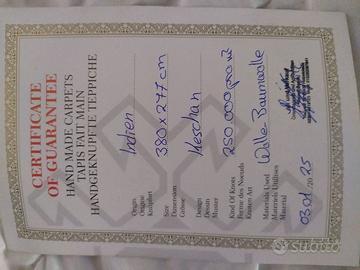 CERTIFICATE
OF GUARANTEE
HAND MADE CARPETS
TAPIS FAIT MAIN
HANDGEKNUPFETE TEPPICHE
Origin
Origine
Indien
Size
Dimension
Grösse
380 x 277 cm
Design
Dessin
Muster
Meschan
Kind Of Knots
Forme des Noeuds
Knoten Art
250 000 pro m²
Materials Used
Materiels Utilises
Material
Wolle-Baumwolle
03.01.2025
subito